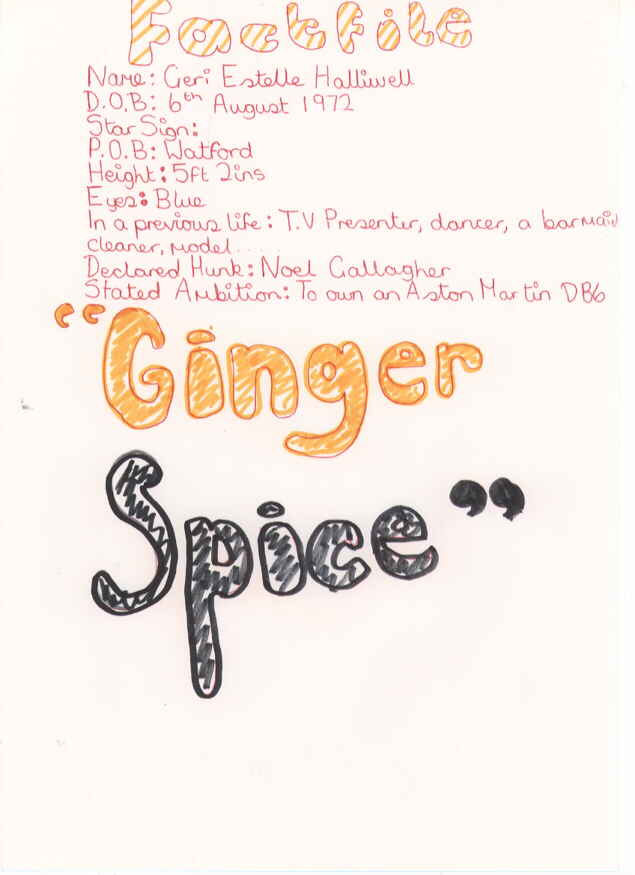 Factfile
Name: Geri Estelle Halliwell
D.O.B: 6th August 1972
Star Sign:
P.O.B: Watford
Height: 5ft 2ins
Eyes: Blue
In a previous life: T.V Presenter, dancer, a barmaid
cleaner, model.....
Declared Hunk: Noel Gallagher
Stated Ambition: To own an Aston Martin DB6
“Ginger
Spice”